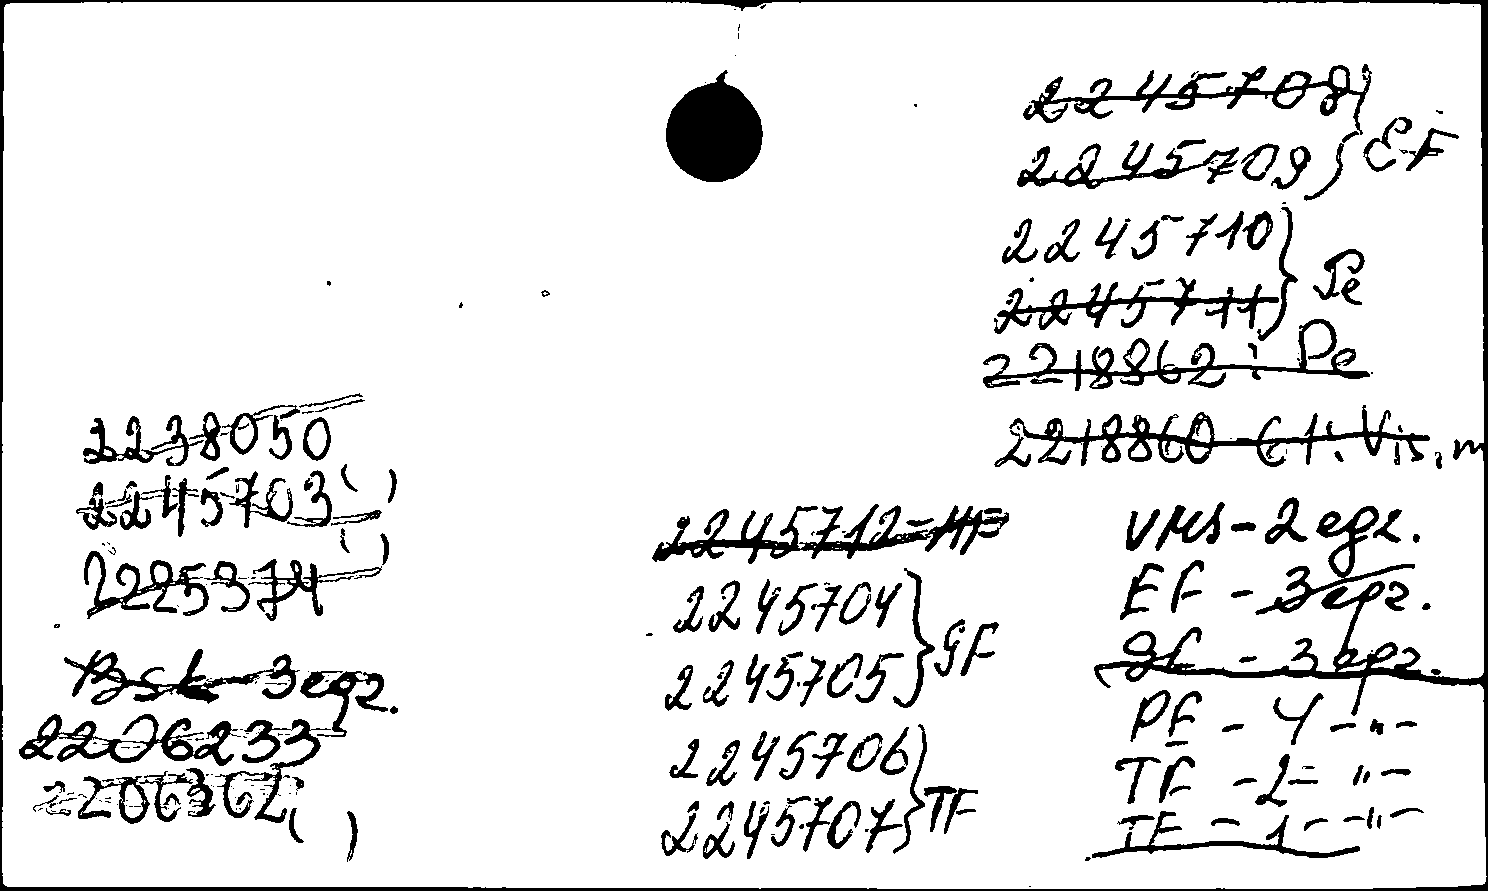 2245708
2245709 } EF
2245710
2245711 } Pe
2218862 : Pe
2218860 - C1: Vis. m
2238050
2245703 ( )
2225374 ( )
Bsk - 3 egz.
2206233
2206362 ( )
2245712 = HF
2245704
2245705 } GF
2245706
2245707 } TF
VMS - 2 egz.
EF - 3 egz.
GF - 3 egz.
PE - 4 - " -
TF - 2 - " -
TF - 1 - " -